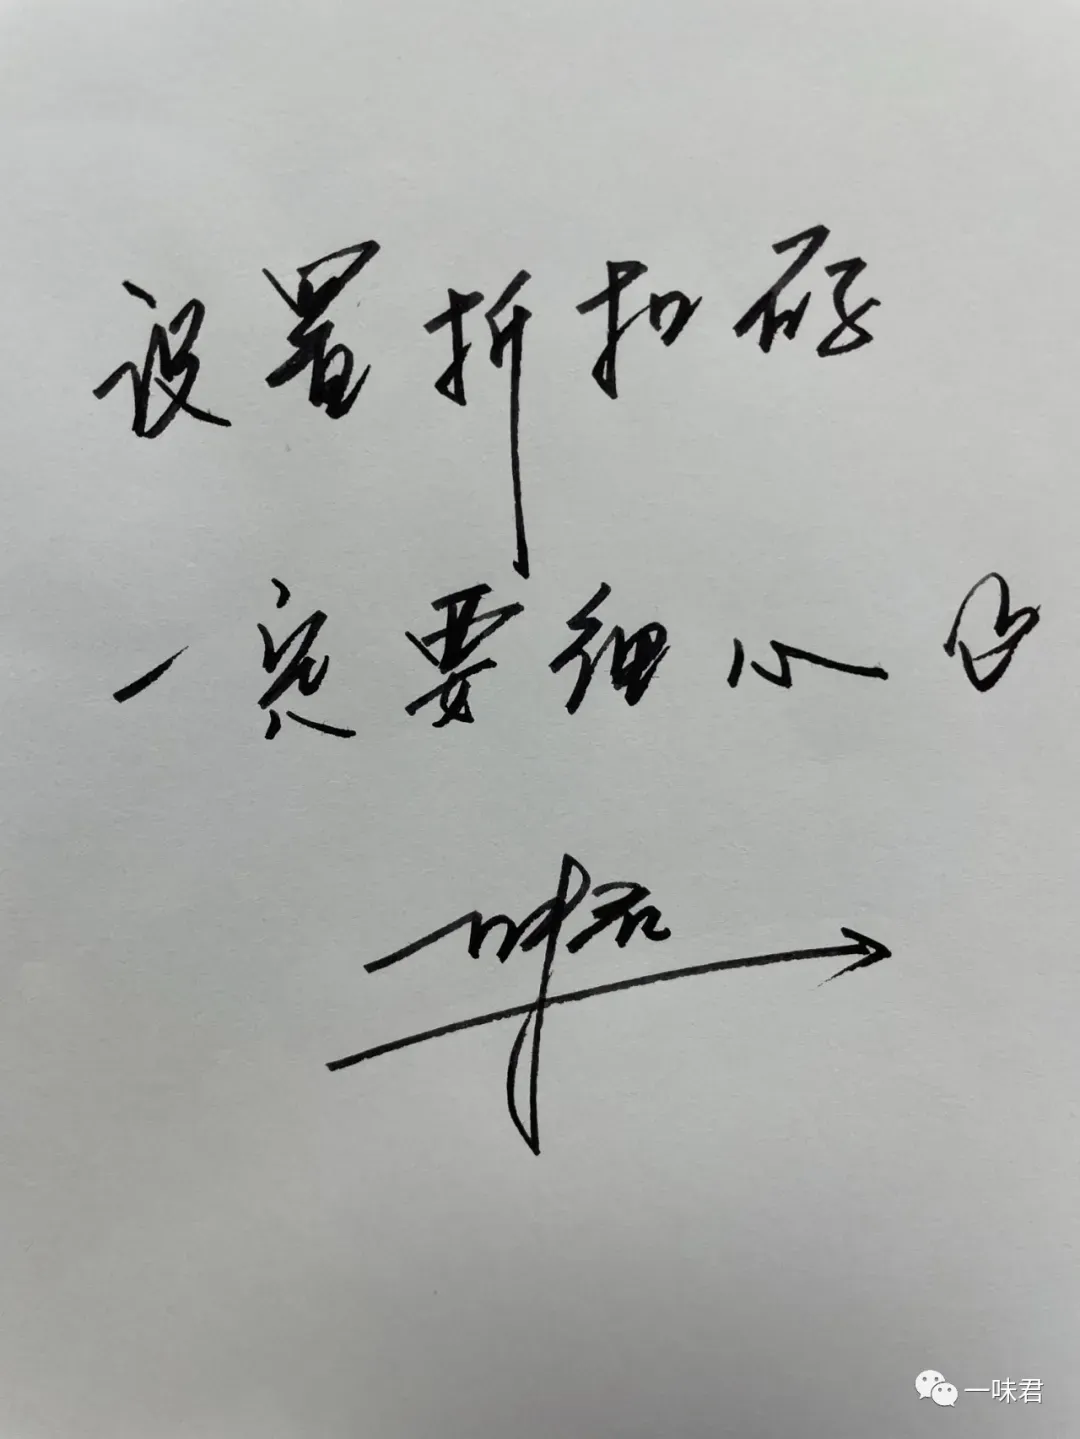 设置折扣码
一定要细心
一味君
一味君